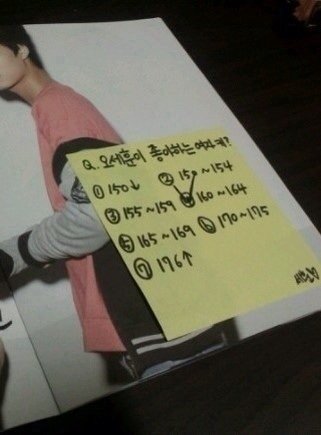 Q. 오세훈이 좋아하는 여자 키?
① 150↓ ② 150~154
③ 155~159 ④ 160~164
⑤ 165~169 ⑥ 170~175
⑦ 176↑